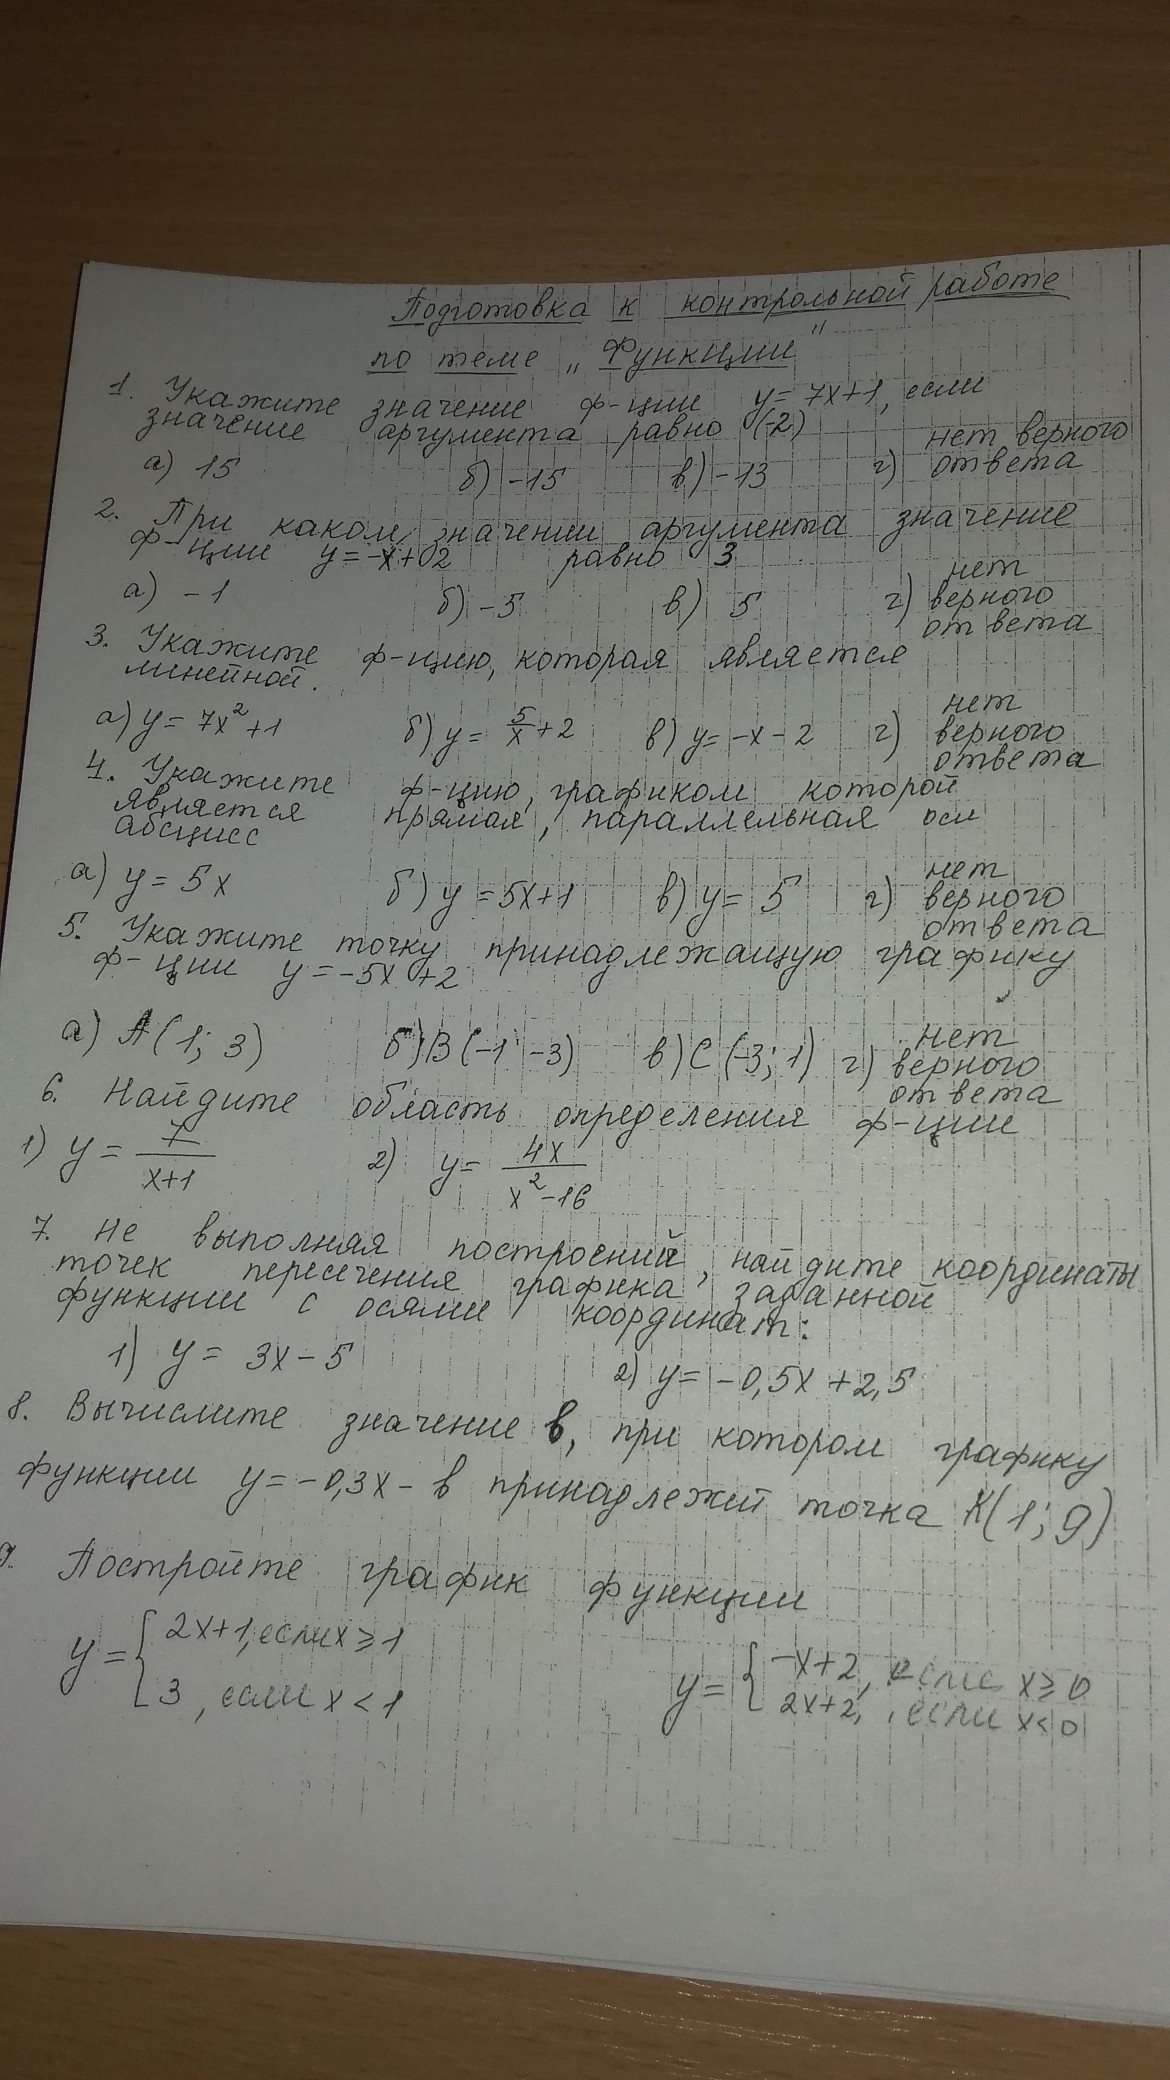 Подготовка к контрольной работе
по теме „Функции"
1. Укажите значение ф-ции y = 7x+1, если
значение аргумента равно (-2)
а) 15 б) -15 в) -13 г) нет верного
ответа
2. При каком значении аргумента значение
ф-ции y = -x + 2 равно 3
а) -1 б) -5 в) 5 г) нет
верного
ответа
3. Укажите ф-цию, которая является
линейной.
а) y = 7x² + 1 б) y = 5/x + 2 в) y = -x - 2 г) нет
верного
ответа
4. Укажите ф-цию, графиком которой
является прямая, параллельная оси
абсцисс
а) y = 5x б) y = 5x+1 в) y = 5 г) нет
верного
ответа
5. Укажите точку принадлежащую графику
ф-ции y = -5x + 2
а) A(1; 3) б) B(-1; -3) в) C(-3; 1) г) нет
верного
ответа
6. Найдите область определения ф-ции
1) y = 7/(x+1) 2) y = 4x/(x²-16)
7. Не выполняя построений, найдите координаты
точек пересечения графика заданной
функции с осями координат:
1) y = 3x - 5 2) y = -0,5x + 2,5
8. Вычислите значение b, при котором графику
функции y = -0,3x - b принадлежит точка K(1; 9)
9. Постройте график функции
y = { 2x+1, если x ≥ 1
3, если x < 1
y = { -x+2, если x ≥ 0
2x+2, если x < 0